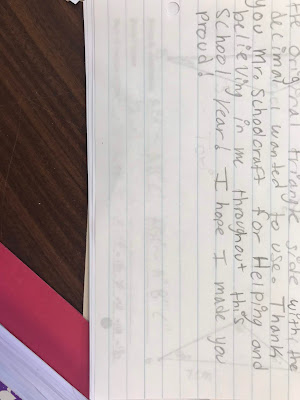 the original triangle side with the
decimal I wanted to use. Thank
you Mr. Schoolcraft for Helping and
believing in me throughout this
school year! I hope I made you
proud!